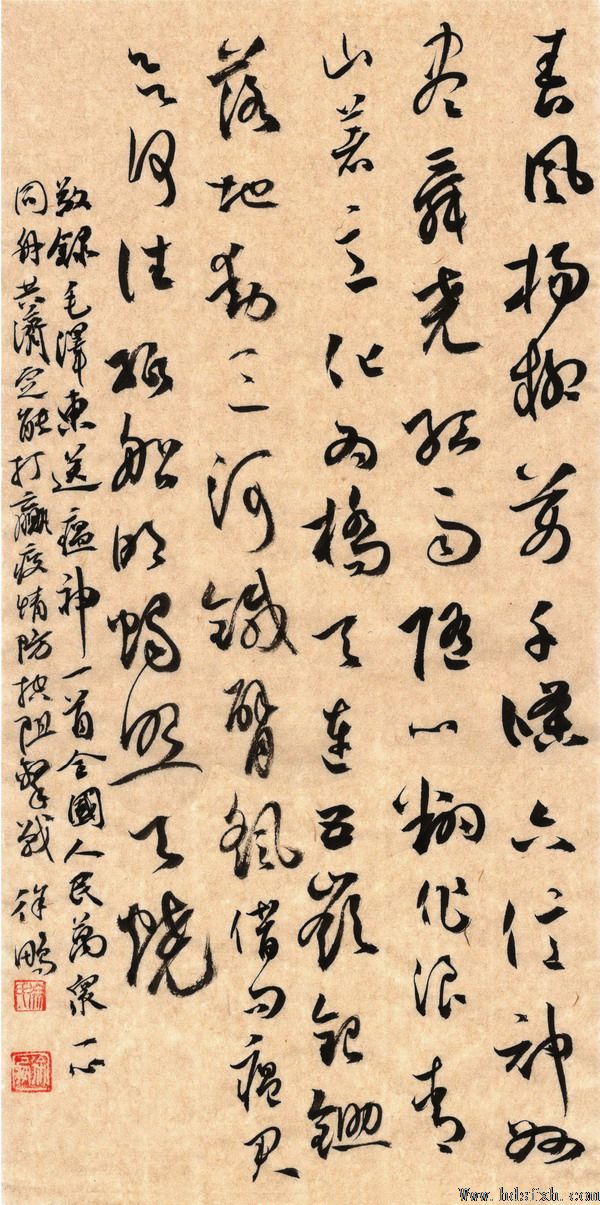 春風楊柳萬千條六億神州
盡舜堯紅雨隨心翻作浪青
山著意化為橋天連五嶺銀鋤
落地動三河鐵臂搖借問瘟君
欲何往紙船明燭照天燒
敬錄毛澤東送瘟神一首全國人民萬眾一心
同舟共濟定能打贏疫情防控阻擊戰 徐鵬